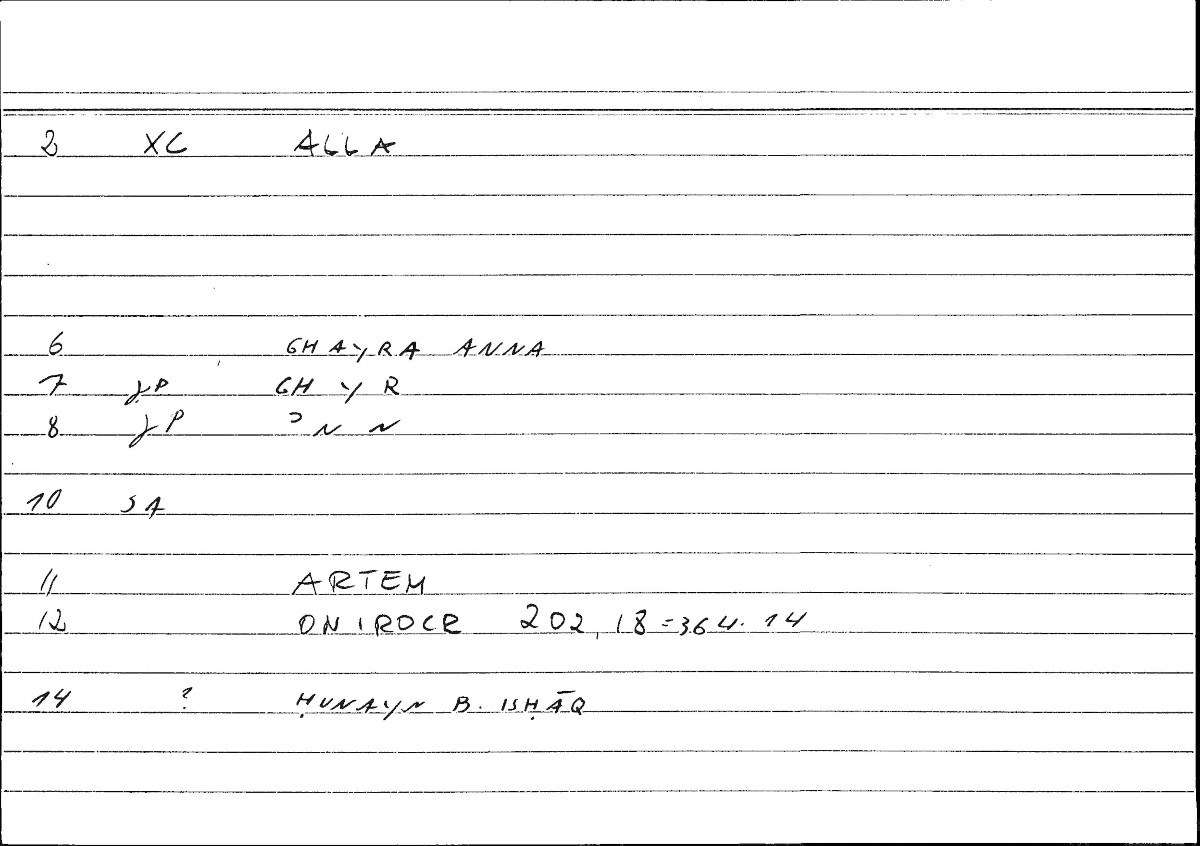 2 XC ALLA
6 GHAYRA ANNA
7 GHYR
8 ʾNN
10 SA
11 ARTEM
12 ONIROCR 202,18=364.14
14 ? ḤUNAYN B. ISḤĀQ